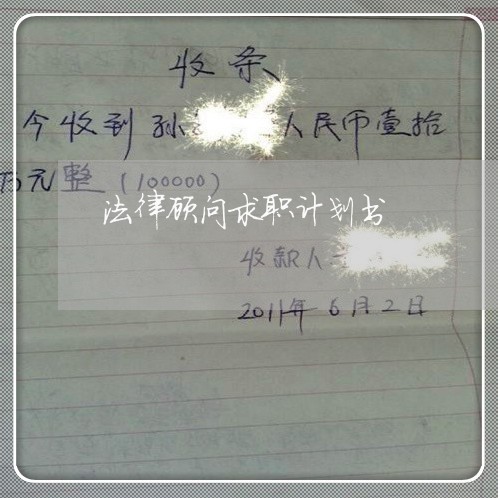 收条
今收到孙 人民币壹拾
万元整(100000)
法律顾问求职计划书
收款人
2011年6月2日